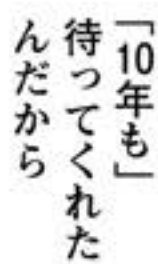 「10年も」
待ってくれた
んだから